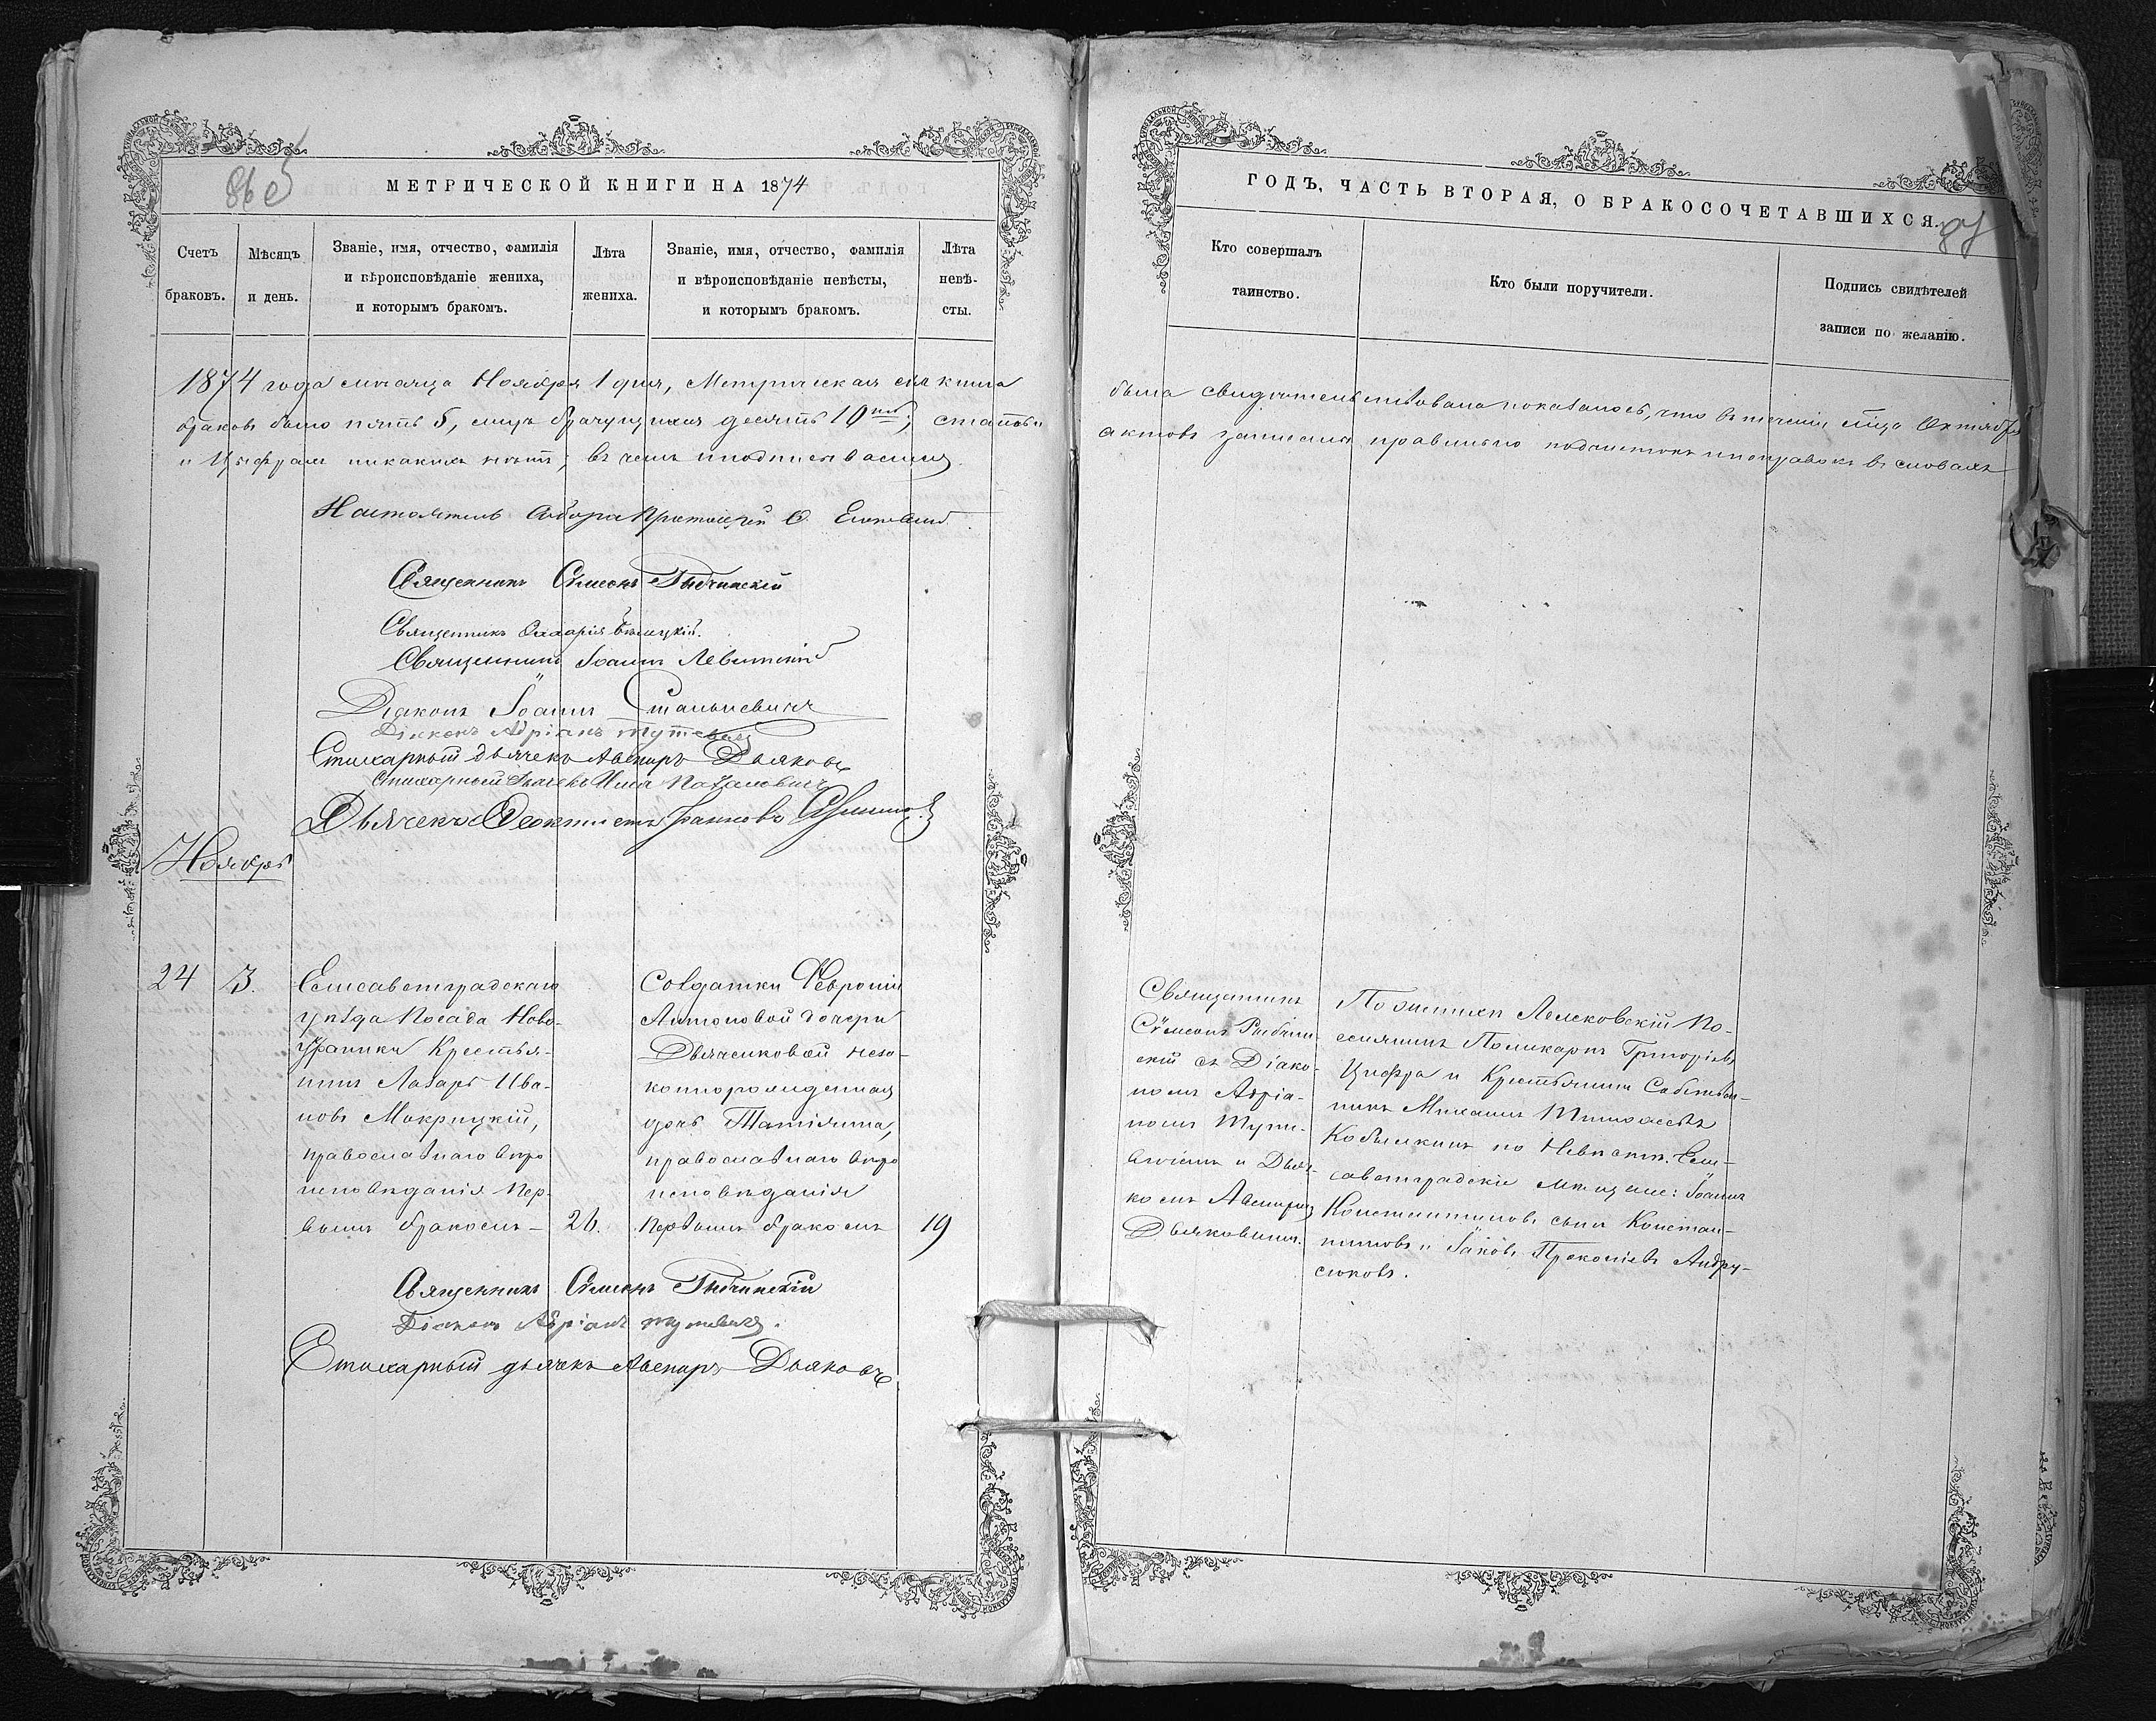 86 об
МЕТРИЧЕСКОЙ КНИГИ НА 1874
Счетъ браковъ.
Мѣсяцъ и день.
Званіе, имя, отчество, фамилія
и вѣроисповѣданіе жениха,
и которымъ бракомъ.
Лѣта
жениха.
Званіе, имя, отчество, фамилія
и вѣроисповѣданіе невѣсты,
и которымъ бракомъ.
Лѣта
невѣ-
сты.
1874 года мѣсяца Ноября 1 дня, Метрическая сія книга
браковъ было пять 5, лицъ брачущихся десять 10; статьи
и Цыфрамъ никакихъ нѣтъ; въ чемъ и подписываемся
Настоятель Собора Протоіерей
Священникъ Сѵмеонъ Рыбчинскій
Священникъ Бѣлецкій.
Священникъ Іоаннъ Левитскій
Діаконъ Іоаннъ Станкевичъ
Діаконъ Адріанъ Тутевичъ
Стихарный дьячекъ Авениръ Дьяковъ
Стихарный дьячекъ Илья
Дьячекъ Феоктистъ
Ноябрь
24
3.
Елисаветградскаго
уѣзда Посада Ново-
Украинки Крестья-
нинъ Лазарь Ива-
новъ Мокрицкій,
православнаго вѣро
исповѣданія пер-
вымъ бракомъ
26.
Солдатки Февроніи
Антоновой дочери
Дьяченковой неза-
коннорожденная
дочь Татіянна,
православнаго вѣро
исповѣданія
первымъ бракомъ
19
Священникъ Сѵмеонъ Рыбчинскій
Діаконъ Адріанъ Тутевичъ.
Стихарный дьячекъ Авениръ Дьяковъ
87
ГОДЪ, ЧАСТЬ ВТОРАЯ, О БРАКОСОЧЕТАВШИХСЯ.
Кто совершалъ
таинство.
Кто были поручители.
Подпись свидѣтелей
записи по желанію.
была свидѣтельствована показалось, что въ теченіи м҃ца Октября
актовъ записана правильно подчистокъ и поправокъ въ словахъ
Священникъ
Сѵмеонъ Рыбчин-
скій съ Діако-
номъ Адріа-
номъ Туте-
вичемъ и Дьяч-
комъ Авениромъ
Дьяковымъ.
По женихѣ Лелековскій По-
селянинъ Поликарпъ Григоріевъ
Цифра и Крестьянинъ Собствен-
никъ Михаилъ Тимофеевъ
Кобылкинъ по Невѣстѣ. Ели-
саветградскіе мѣщане: Іоаннъ
Константиновъ сынъ Констан-
тиновъ и Іаковъ Прокопіевъ Андру-
сюковъ.